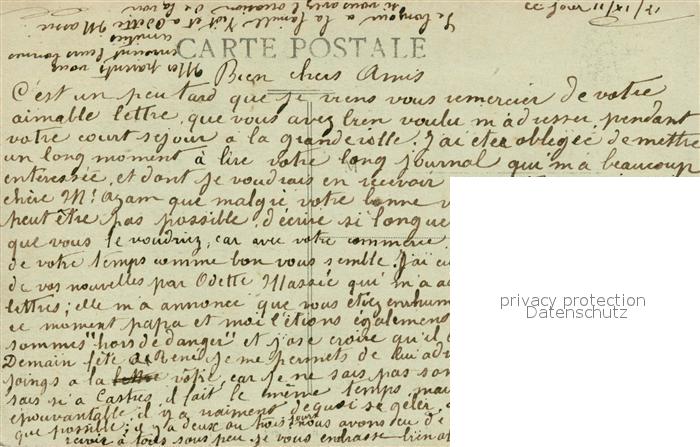 ce jour 11/XI/21
Le bonjour à la famille Noit et à Odette Massié
si vous avez l'occasion de la voir
Mes parents vous
envoient leurs bonnes
amitiés
CARTE POSTALE
Bien chers Amis
C'est un peu tard que je viens vous remercier de votre
aimable lettre, que vous avez bien voulu m'adresser, pendant
votre court séjour à la grande ville. J'ai été obligée de mettre
un long moment à lire votre long journal qui m'a beaucoup
intéressée, et dont je voudrais en recevoir
chère Me Azam que malgré votre bonne v
peut être pas possible d'écrire si longue
que vous le voudriez, car avec votre commerce
de votre temps comme bon vous semble. J'ai eu
de vos nouvelles par Odette Massié qui m'a a
lettres; elle m'a annoncé que vous étiez enrhum
ce moment papa et moi l'étions égalemen
sommes "hors de danger" et j'ose croire qu'il
Demain fête de René je me permets de lui adr
joins à la vôtre, car je ne sais pas son
sais si à Castres il fait le même temps, mai
épouvantable il y a vraiment de quoi se geler.
que possible; il y a deux ou trois jours nous avons eu de
revoir à tous sous peu je vous embrasse bien a
privacy protection
Datenschutz